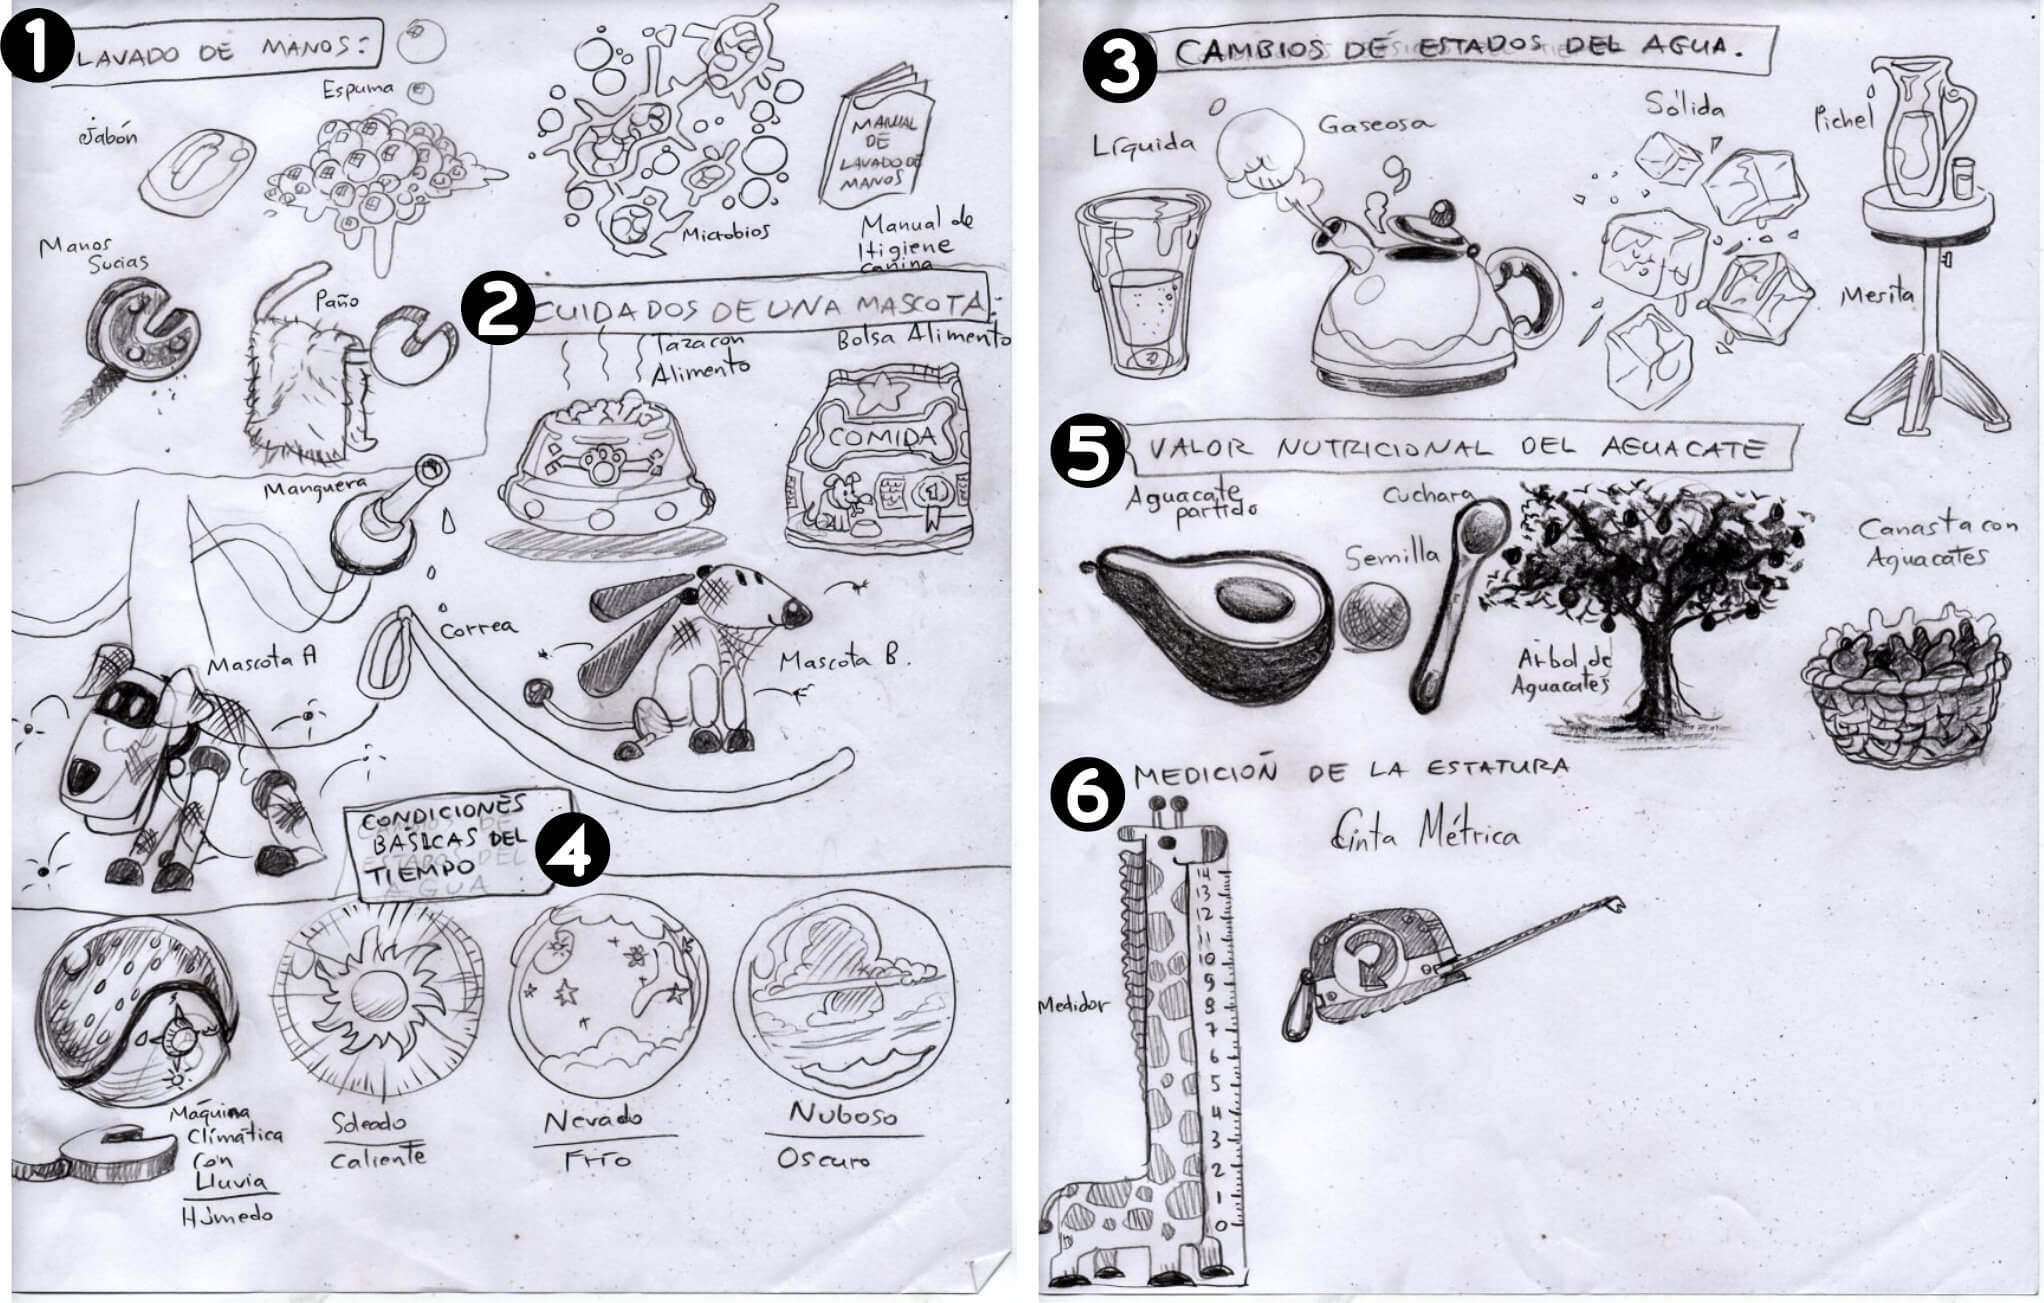 1
LAVADO DE MANOS:
Espuma
Jabón
MANUAL
DE
LAVADO DE
MANOS
Microbios
Manual de
Higiene
canina
Manos
Sucias
Paño
2
CUIDADOS DE UNA MASCOTA:
Taza con
Alimento
Bolsa Alimento
COMIDA
1
Manguera
Correa
Mascota A
Mascota B.
CONDICIONES
BÁSICAS DEL
TIEMPO
4
Máquina
Climática
Con
Lluvia
Húmedo
Soleado
Caliente
Nevado
Frío
Nuboso
Oscuro
3
CAMBIOS DE ESTADOS DEL AGUA.
Líquida
Gaseosa
Sólida
Pichel
Mesita
5
VALOR NUTRICIONAL DEL AGUACATE
Aguacate
partido
Semilla
Cuchara
Arbol de
Aguacates
Canasta con
Aguacates
6
MEDICIOÑ DE LA ESTATURA
Cinta Métrica
Medidor
14
13
12
11
10
9
8
7
6
5
4
3
2
1
0